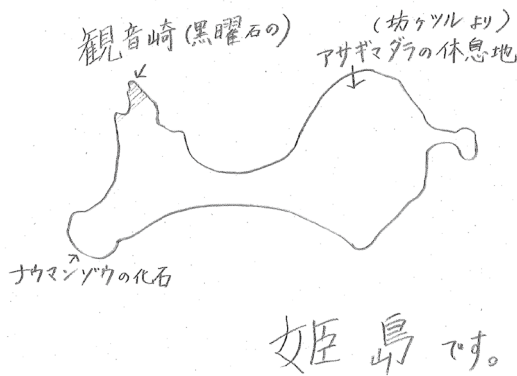 観音崎(黒曜石の)
(坊ヶツルより)
アサギマダラの休息地
ナウマンゾウの化石
姫島です。